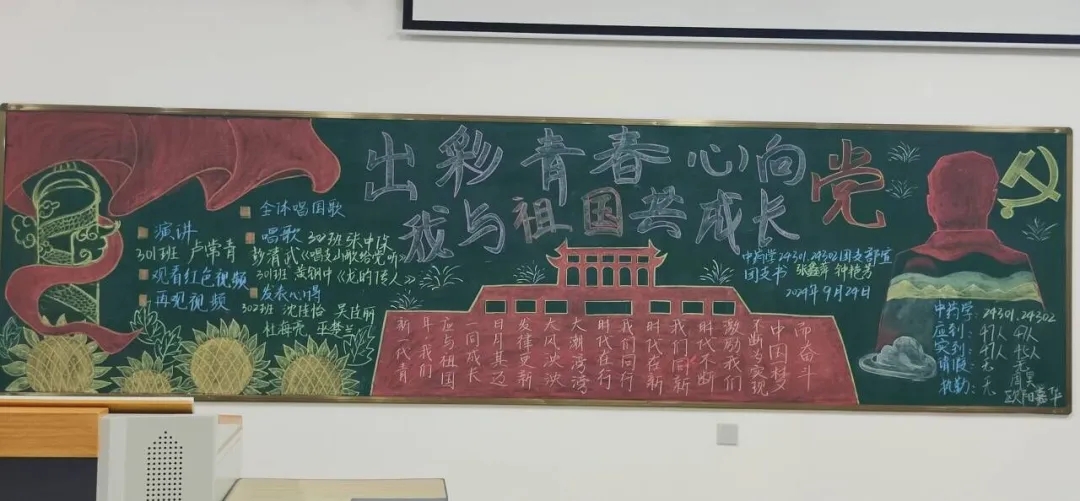 出彩青春心向党
我与祖国共成长
全体唱国歌
演讲
301班 卢常青
唱歌 302班张中保
彭清武《唱支山歌给党听》
301班 黄钢中《龙的传人》
观看红色视频
再观视频
发表心得
302班 沈佳怡 吴佳丽
中药学24301.24302团支部宣
团支书 张鑫萍 钟艳芳
2024年9月29日
而奋斗
中国梦
不断为实现
激励我们
时代不断
我们同新
时代在新
我们同行
时代在行
大潮湾湾
大风泱泱
发律更新
日月其迈
一同成长
应与祖国
年我们
新一代青
中药学: 24301.24302
应到: 49人
实到: 49人
请假: 无 无
执勤: 无